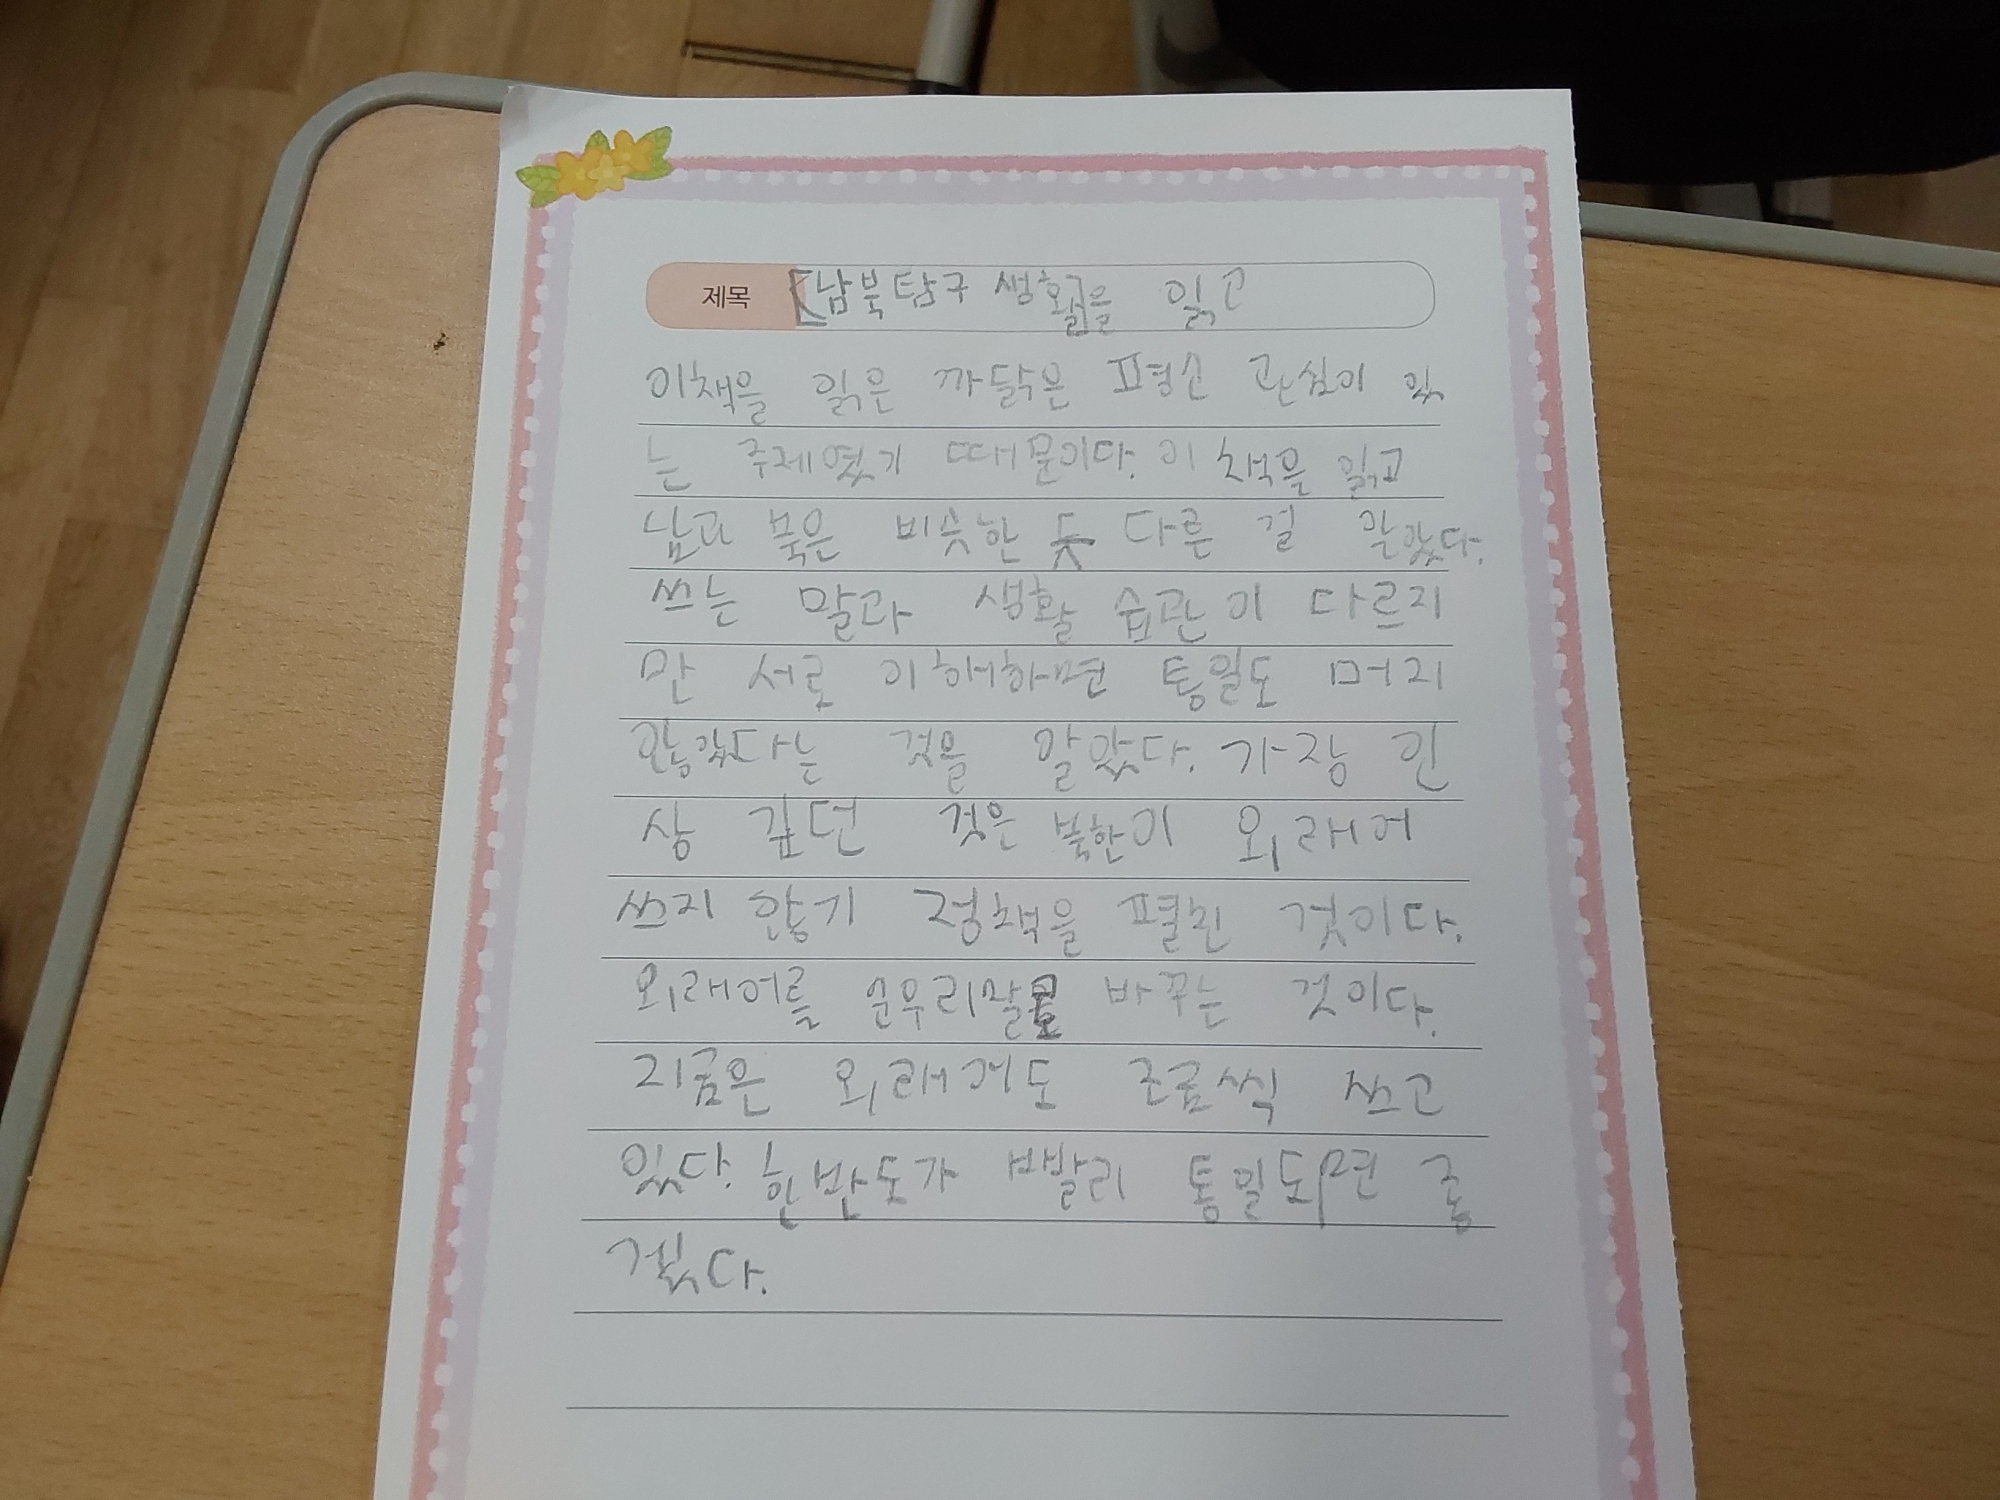 제목 [남북탐구 생활]을 읽고
이책을 읽은 까닭은 평신 관심이 있
는 주제였기 때문이다. 이 책을 읽고
남과 북은 비슷한 듯 다른 걸 알았다.
쓰는 말과 생활 습관이 다르지
만 서로 이해하면 통일도 머지
않았다는 것을 알았다. 가장 인
상 깊던 것은 북한이 외래어
쓰지 않기 정책을 펼친 것이다.
외래어를 순우리말로 바꾸는 것이다.
지금은 외래어도 조금씩 쓰고
있다. 한반도가 빨리 통일되면 좋
겠다.